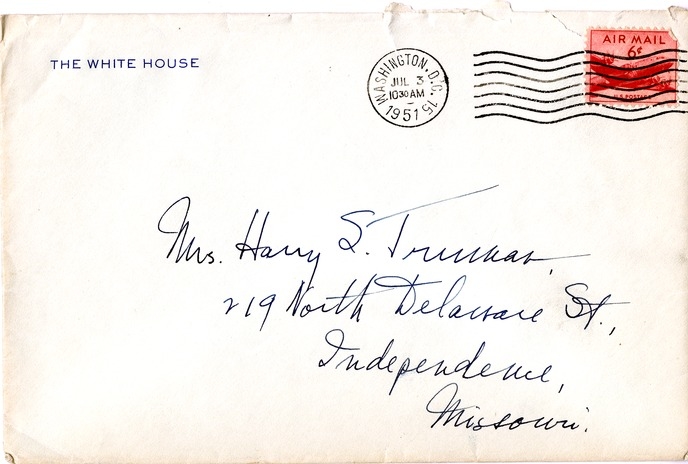 THE WHITE HOUSE
WASHINGTON, D.C. 15
JUL 3
10 30 AM
1951
AIR MAIL
6¢
U.S. POSTAGE
Mrs. Harry S. Truman,
219 North Delaware St.,
Independence,
Missouri.